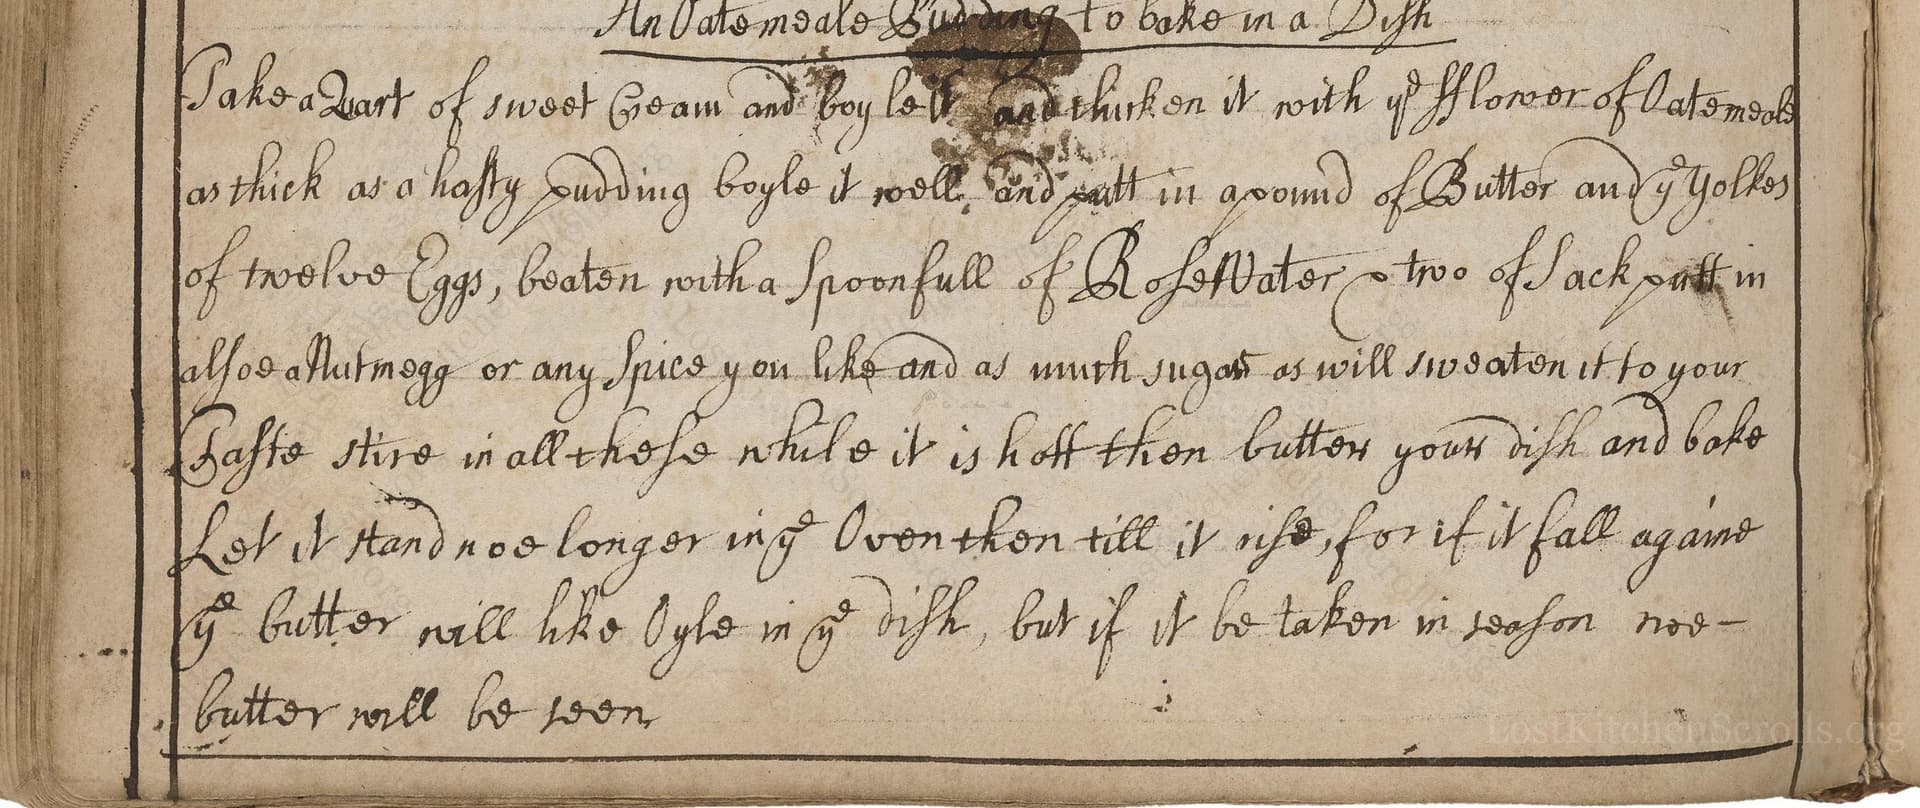 An Oatemeale Pudding to bake in a Dish
Take a Quart of sweet Cream and boyle it and thicken it with yͤ fflower of Oatemeale
as thick as a hasty pudding boyle it well, and putt in a pound of Butter and yͤ Yolkes
of twelve Eggs, beaten with a Spoonfull of RoseWater & two of Sack putt in
alsoe a Nutmegg or any Spice you like and as much sugar as will sweaten it to your
Taste stire in all these while it is hott then butter your dish and bake
Let it stand noe longer in yͤ Oven then till it rise, for if it fall againe
yͤ butter will like Oyle in yͤ dish, but if it be taken in season noe-
butter will be seen
LostKitchenScrolls.org